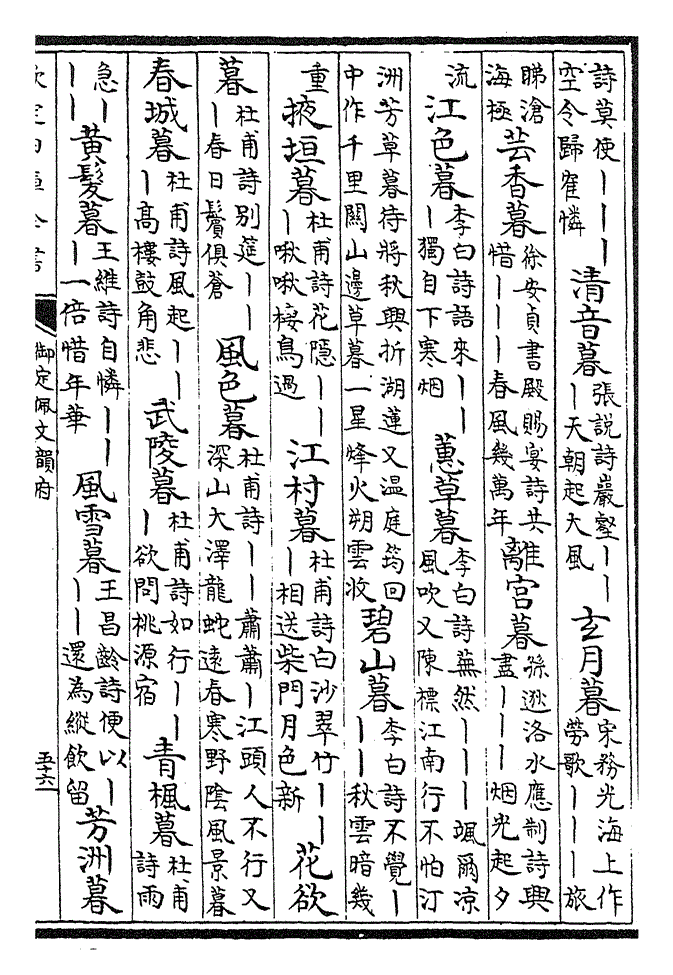 詩莫使｜｜｜空令歸窪憐　清音暮　張說詩巖壑｜｜｜天朝起大風　玄月暮　宋務光海上作勞歌｜｜｜旅
睇滄海極　芸香暮　徐安貞書殿賜宴詩共惜｜｜｜春風幾萬年　離宮暮　孫逖洛水應制詩興盡｜｜｜烟光起夕
流　江色暮　李白詩語來｜｜｜獨自下寒烟　蕙草暮　李白詩蕪然｜｜｜颯爾凉風吹又陳標江南行不怕汀
洲芳草暮待將秋興折湖蓮又温庭筠回中作千里關山邊草暮一星烽火朔雲收　碧山暮　李白詩不覺｜｜｜秋雲暗幾
重　掖垣暮　杜甫詩花隱｜｜｜啾啾棲鳥過　江村暮　杜甫詩白沙翠竹｜｜｜相送柴門月色新　花欲
暮　杜甫詩別筵｜｜｜春日鬢俱蒼　風色暮　杜甫詩｜｜蕭蕭｜江頭人不行又深山大澤龍蛇遠春寒野陰風景暮
春城暮　杜甫詩風起｜｜｜高樓鼓角悲　武陵暮　杜甫詩如行｜｜｜欲問桃源宿　青楓暮　杜甫詩雨
急｜｜｜　黃髮暮　王維詩自憐｜｜｜一倍惜年華　風雪暮　王昌齡詩便以｜｜｜還為縱飲留　芳洲暮
欽定四庫全書　御定佩文韻府　五十六